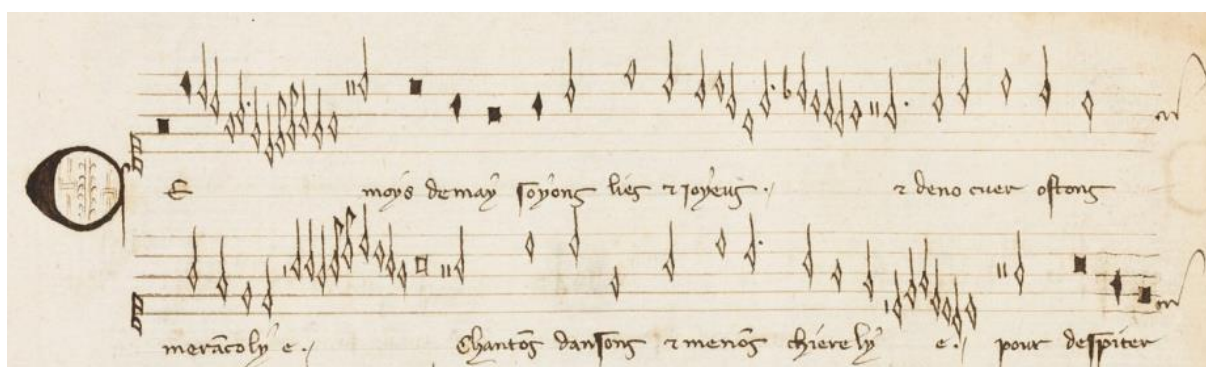 E moys de may soyons lies & joyeus & de no cuer ostons
merãcolye Chantõs dansons & menõs chiere lye pour despiter